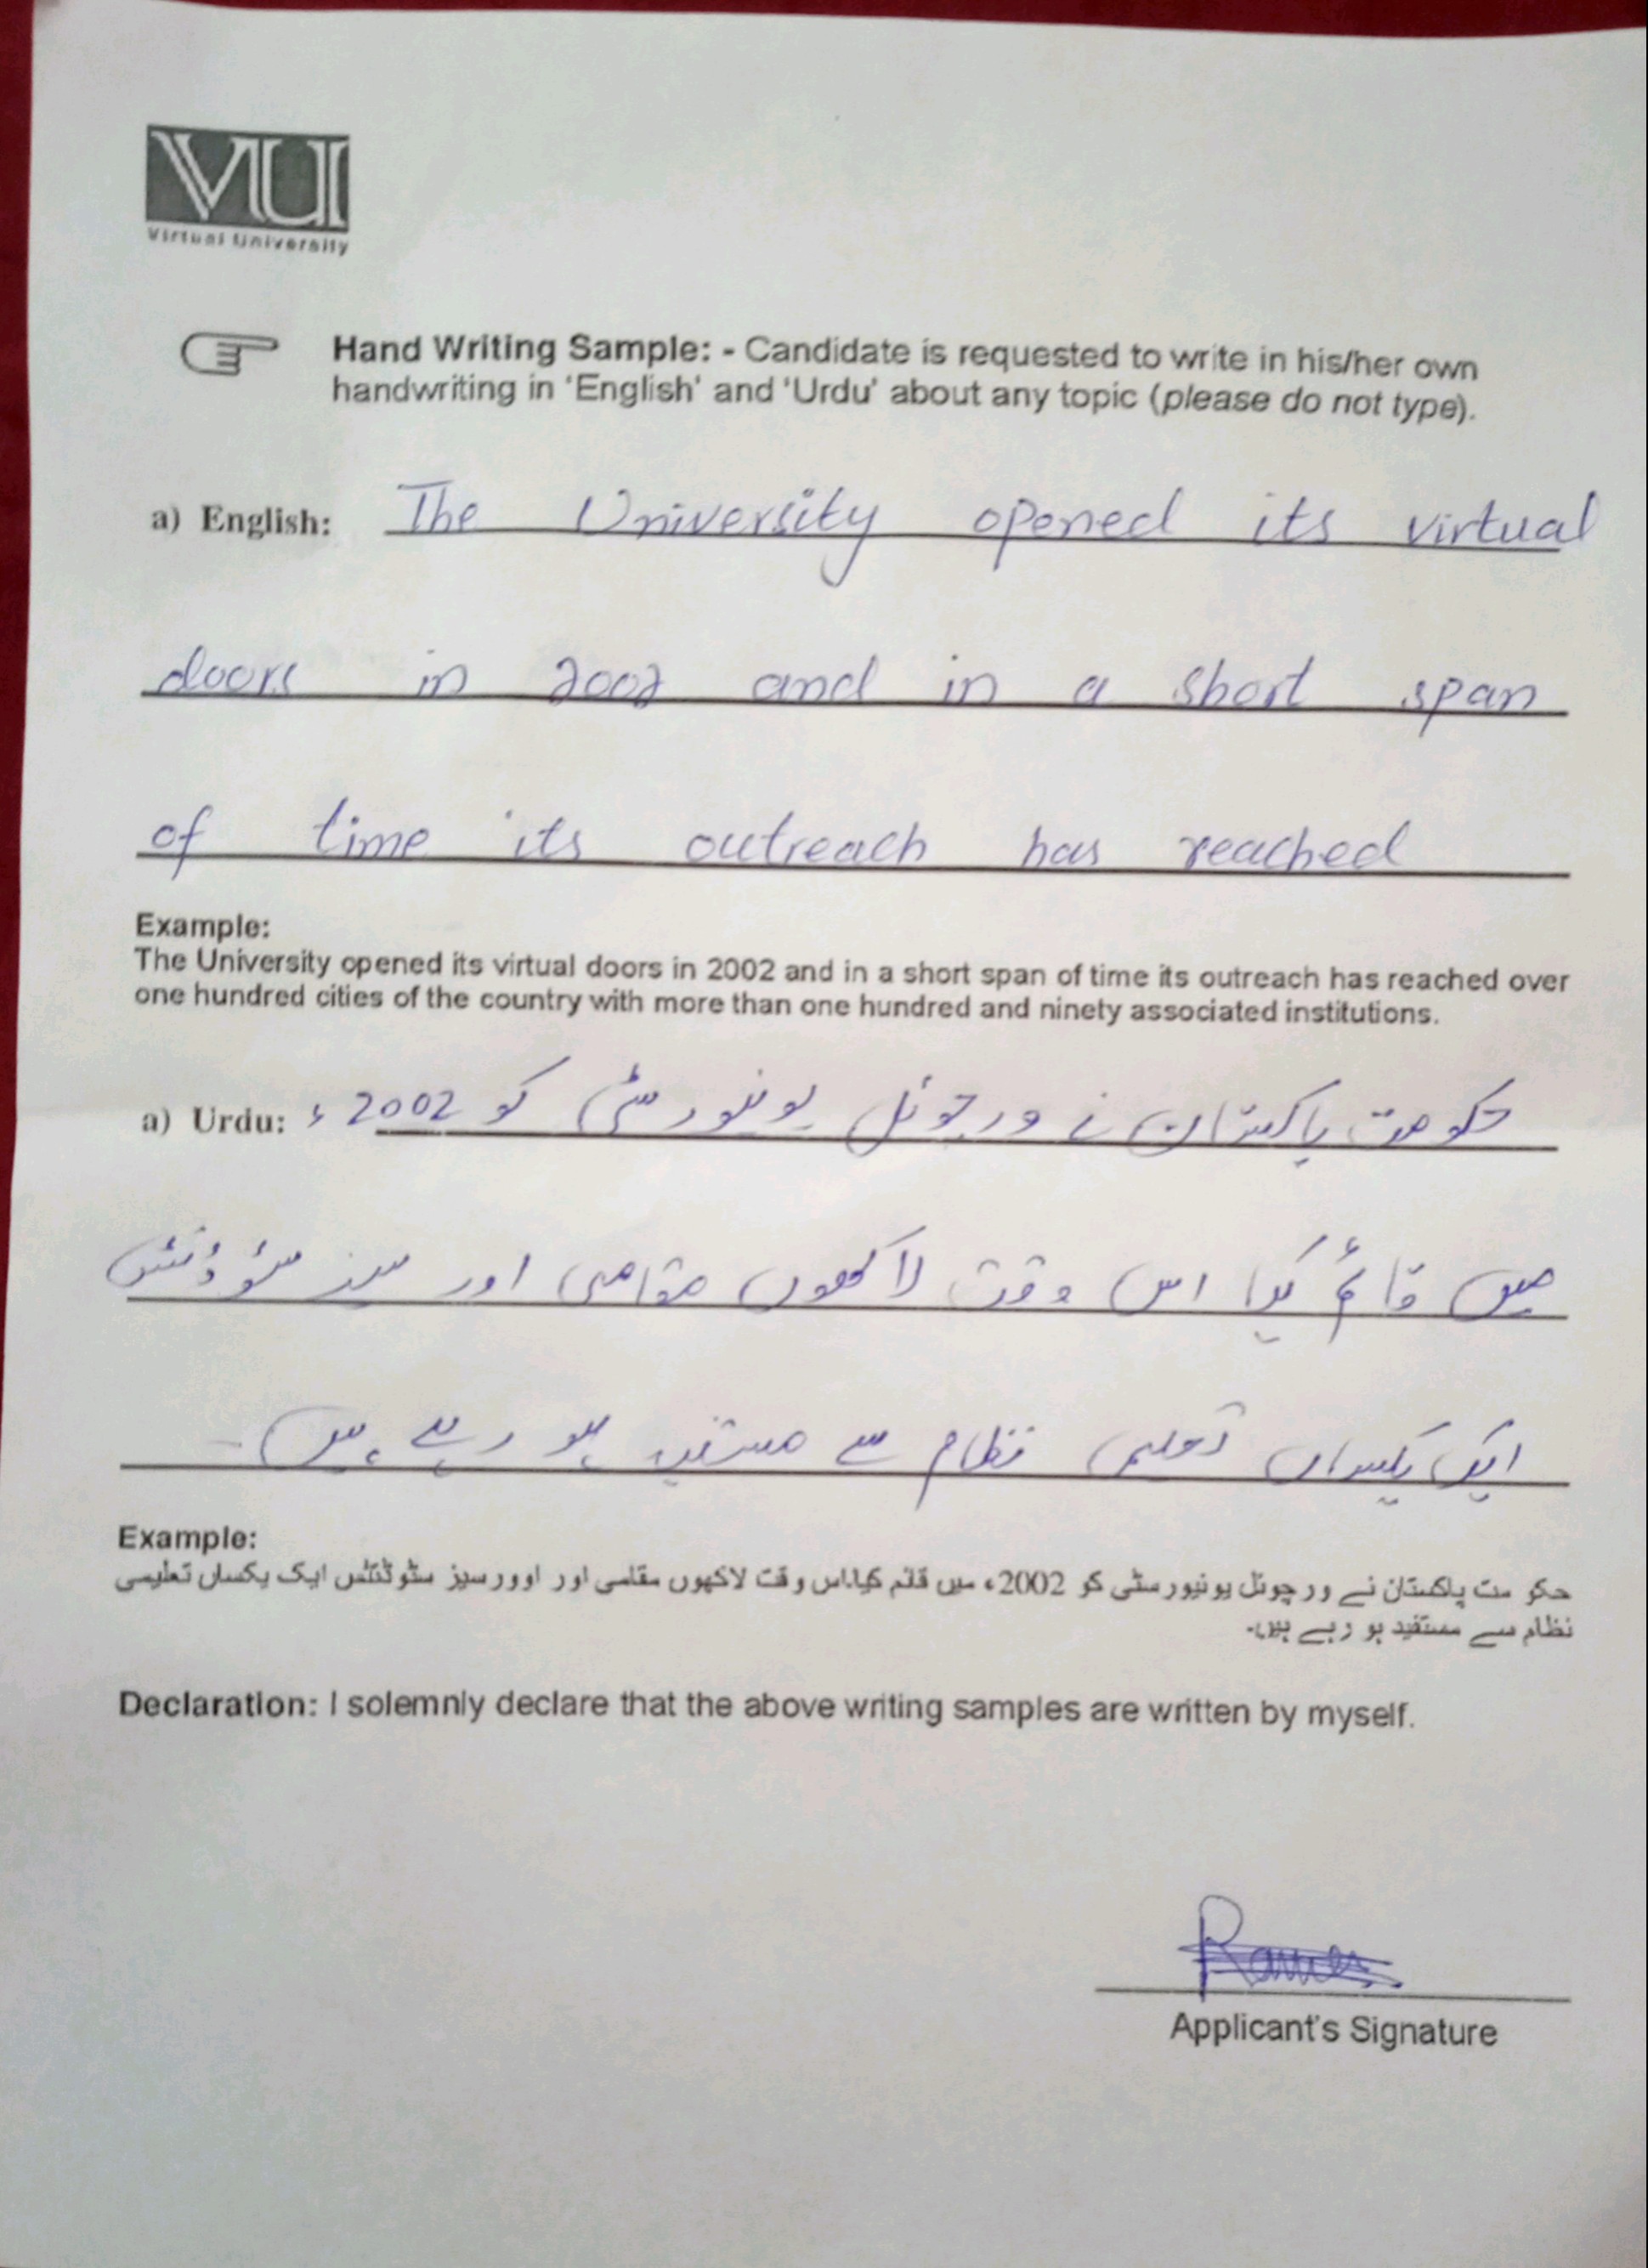 VU
Virtual University
Hand Writing Sample: - Candidate is requested to write in his/her own
handwriting in 'English' and 'Urdu' about any topic (please do not type).
a) English: The University opened its virtual
doors in 2002 and in a short span
of time its outreach has reached
Example:
The University opened its virtual doors in 2002 and in a short span of time its outreach has reached over
one hundred cities of the country with more than one hundred and ninety associated institutions.
a) Urdu: حکومت پاکستان نے ورچوئل یونیورسٹی کو 2002ء
میں قائم کیا اس وقت لاکھوں مقامی اور سیز سٹوڈنٹس
ایک یکساں تعلیمی نظام سے مستفید ہو رہے ہیں۔
Example:
حکو مت پاکستان نے ور چوئل یونیورسٹی کو 2002ء میں قائم کیا.اس وقت لاکھوں مقامی اور اوورسیز سٹوڈنٹس ایک یکساں تعلیمی
نظام سے مستفید ہو رہے ہیں.
Declaration: I solemnly declare that the above writing samples are written by myself.
Applicant's Signature